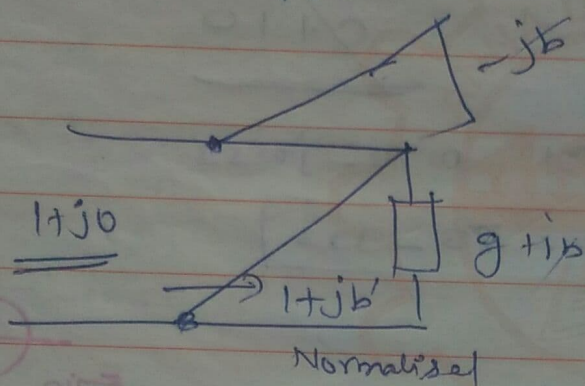 -jb
1+j0
g+jb
1+jb'
Normalised